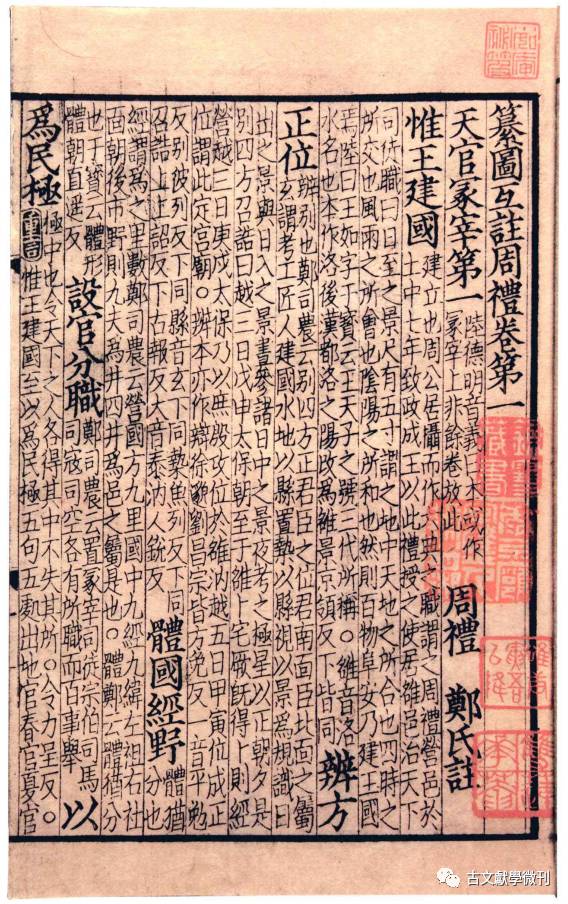 纂圖互註周禮卷第一
天官冢宰第一
陸德明音義曰本或作
冢宰上非餘卷放此
周禮 鄭氏註
惟王建國
建立也周公居攝而作六典之職謂之周禮營邑於
土中七年致政成王以此禮授之使居雒邑治天下
司徒職曰日至之景尺有五寸謂之地中天地之所合也四時之
所交也風雨之所會也陰陽之所和也然則百物阜安乃建王國
焉陸曰王如字于寶云王天子之號三代所稱。雒音洛
水名也本作洛後漢都洛之陽改爲雒景京領反下皆同
辨方
正位
辨別也鄭司農云別四方正君臣之位君南面臣北面之屬
玄謂考工匠人建國水地以縣置槷以縣視以景爲規識日
出之景與日入之景晝參諸日中之景夜考之極星以正朝夕是
別四方召誥曰越三日戊申太保朝至于雒卜宅厥旣得卜則經
營越三日庚戌太保乃以庶殷攻位於雒汭越五日甲寅位成正
位謂此定宮廟。辨本亦作辯徐邈劉昌宗皆方免反一音平勉
反別彼列反下同縣音玄下同槷魚列反下同
召誥上上詔反下古報反大音泰汭人銳反
體國經野
體猶
分也
經謂爲之里數鄭司農云營國方九里國中九經九緯左祖右社
面朝後市野則九夫爲井四井爲邑之屬是也。體鄭云體猶分
也于寶云體形
體朝直遥反
設官分職
鄭司農云置冢宰司徒宗伯司馬
司寇司空各有所職而百事舉
以
爲民極
極中也令天下之人各得其中不失其所。令力呈反。
重圖惟王建國至以爲民極五句五處出地官春官夏官
古文獻學微刊